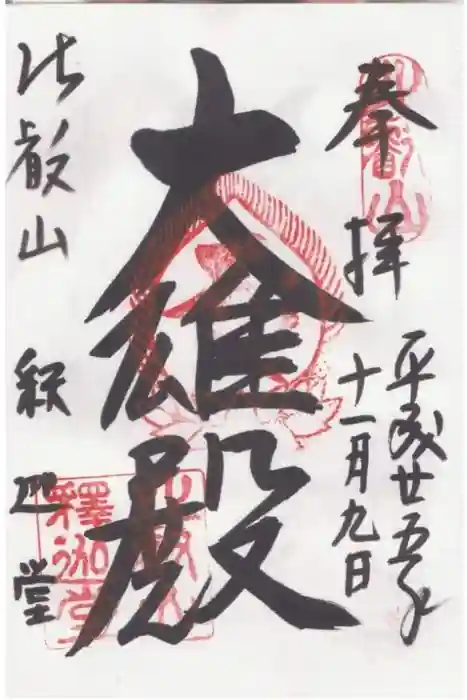 奉拝
平成廿五年
十一月九日
大雄殿
比叡山 釈迦堂
比叡山
比叡山
釋迦堂